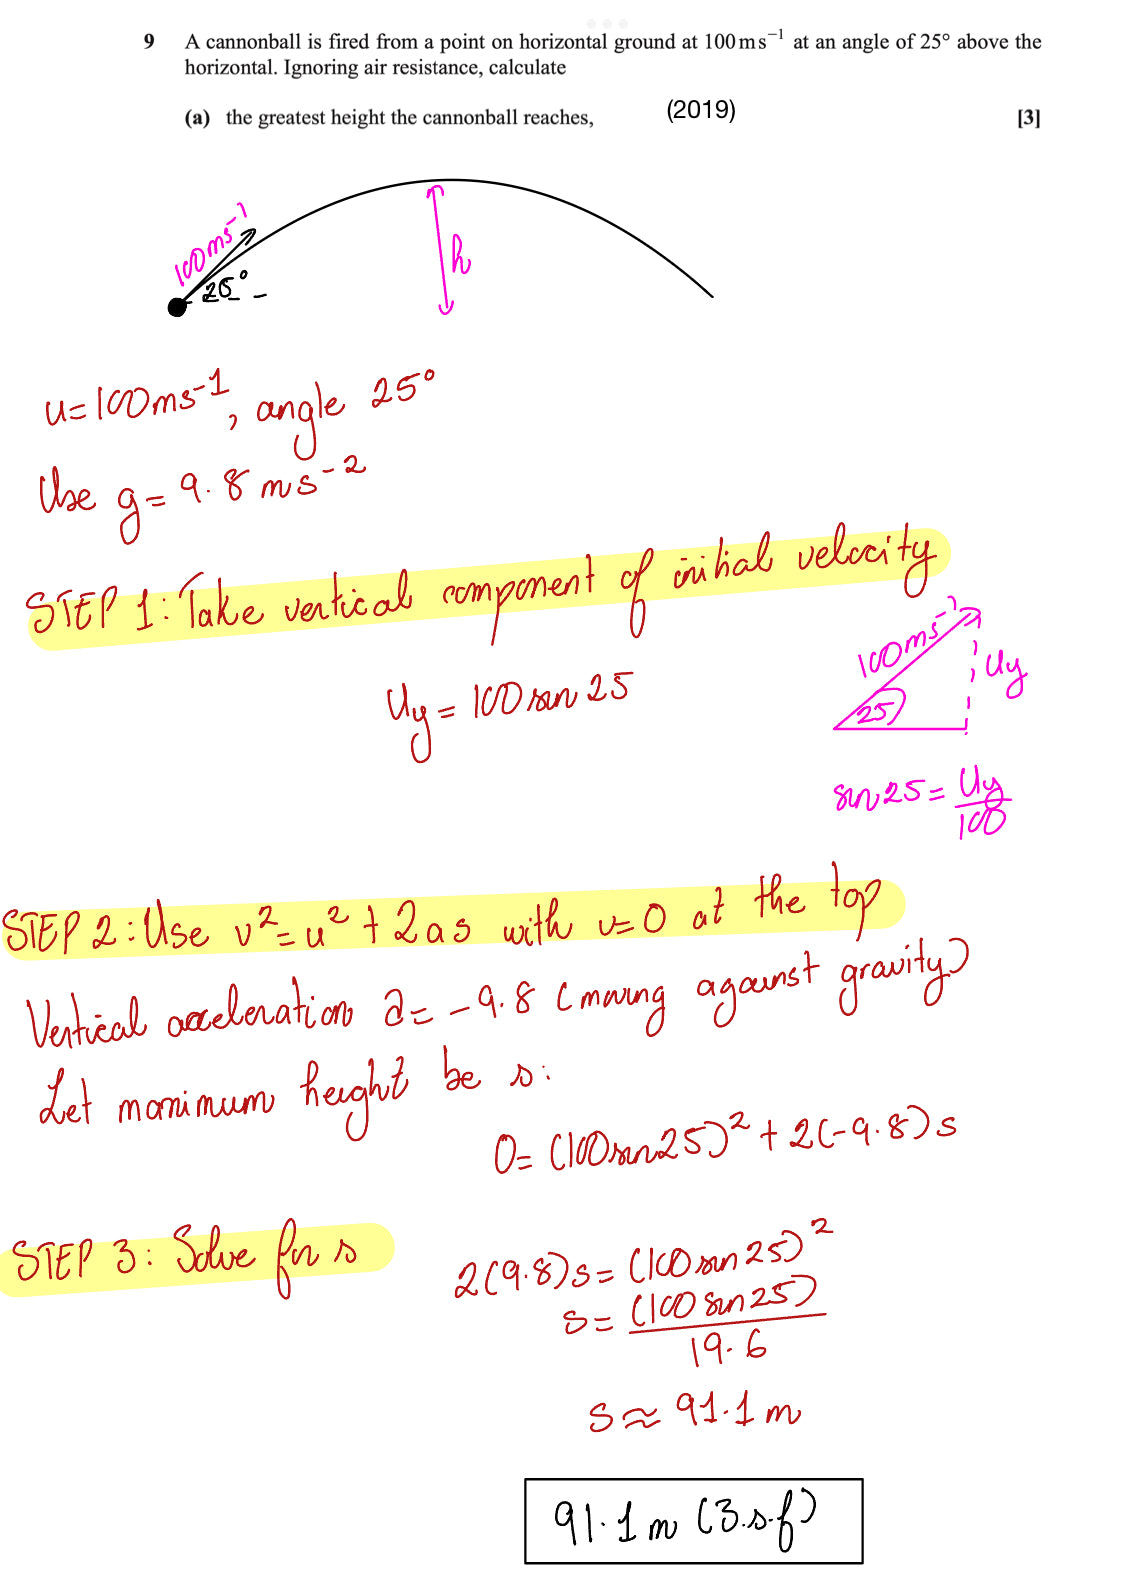 9 A cannonball is fired from a point on horizontal ground at 100 m s⁻¹ at an angle of 25° above the
horizontal. Ignoring air resistance, calculate
(a) the greatest height the cannonball reaches, (2019) [3]
100ms⁻¹
25°
h
u=100ms⁻¹, angle 25°
Use g = 9.8 ms⁻²
STEP 1: Take vertical component of initial velocity
100ms⁻¹
Uy
25
Uy = 100 sin 25
sin 25 = Uy/100
STEP 2: Use v² = u² + 2as with v=0 at the top
Vertical acceleration a = -9.8 (moving against gravity)
Let maximum height be s:
0 = (100sin25)² + 2(-9.8)s
STEP 3: Solve for s
2(9.8)s = (100 sin 25)²
s = (100 sin 25)/19.6
s ≈ 91.1 m
91.1 m (3.s.f)